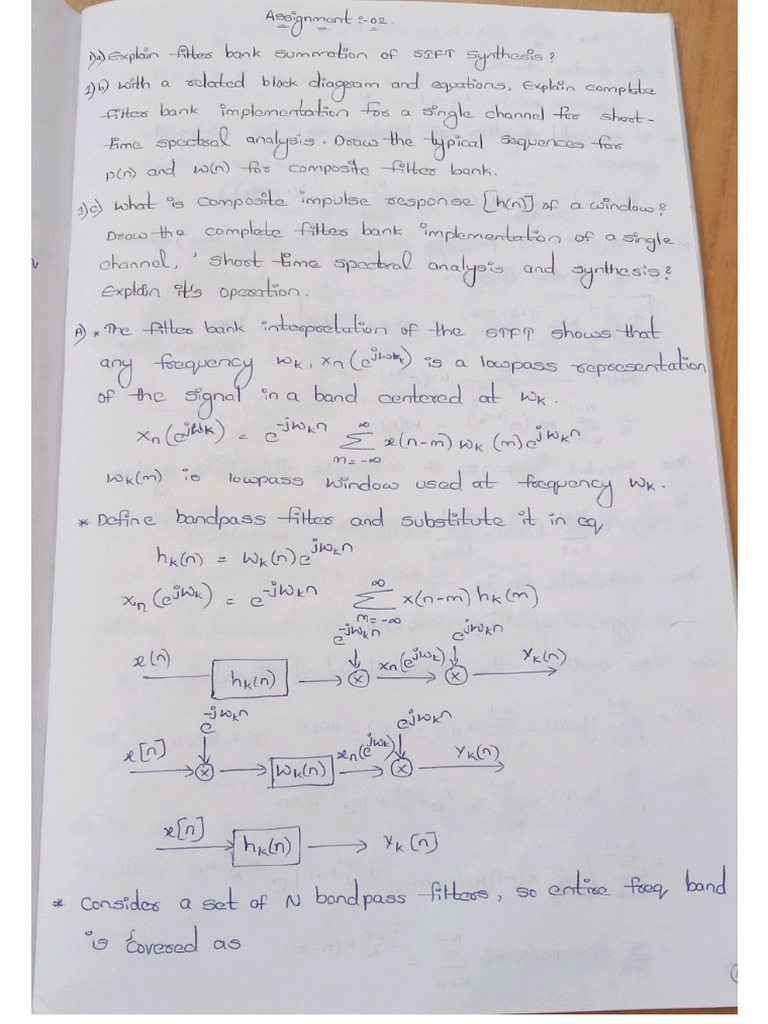 Assignment :- 02.
1)a) Explain filter bank summation of STFT synthesis?
1)b) with a related block diagram and equations, Explain complete
filter bank implementation for a single channel for short-
time spectral analysis. Draw the typical sequences for
p(n) and w(n) for composite filter bank.
1)c) what is composite impulse response [h(n)] of a window?
Draw the complete filter bank implementation of a single
channel, ' short time spectral analysis and synthesis?
Explain it's operation.
A) * The filter bank interpretation of the STFT shows that
any frequency ωk, xn(e^jωk) is a lowpass representation
of the signal in a band centered at ωk.
xn(e^jωk) = e^-jωkn ∑ m=-∞ ∞ x(n-m) ωk(m) e^jωkn
ωk(m) is lowpass window used at frequency ωk.
* Define bandpass filter and substitute it in eq
hk(n) = ωk(n) e^jωkn
xn(e^jωk) = e^-jωkn ∑ m=-∞ ∞ x(n-m) hk(m)
e^-jωkn e^jωkn
x(n) hk(n) x xn(e^jωk) x yk(n)
e^-jωkn e^jωkn
x[n] x ωk(n) xn(e^jωk) x yk(n)
x[n] hk(n) yk[n]
* Consider a set of N bandpass filters, so entire freq band
is covered as